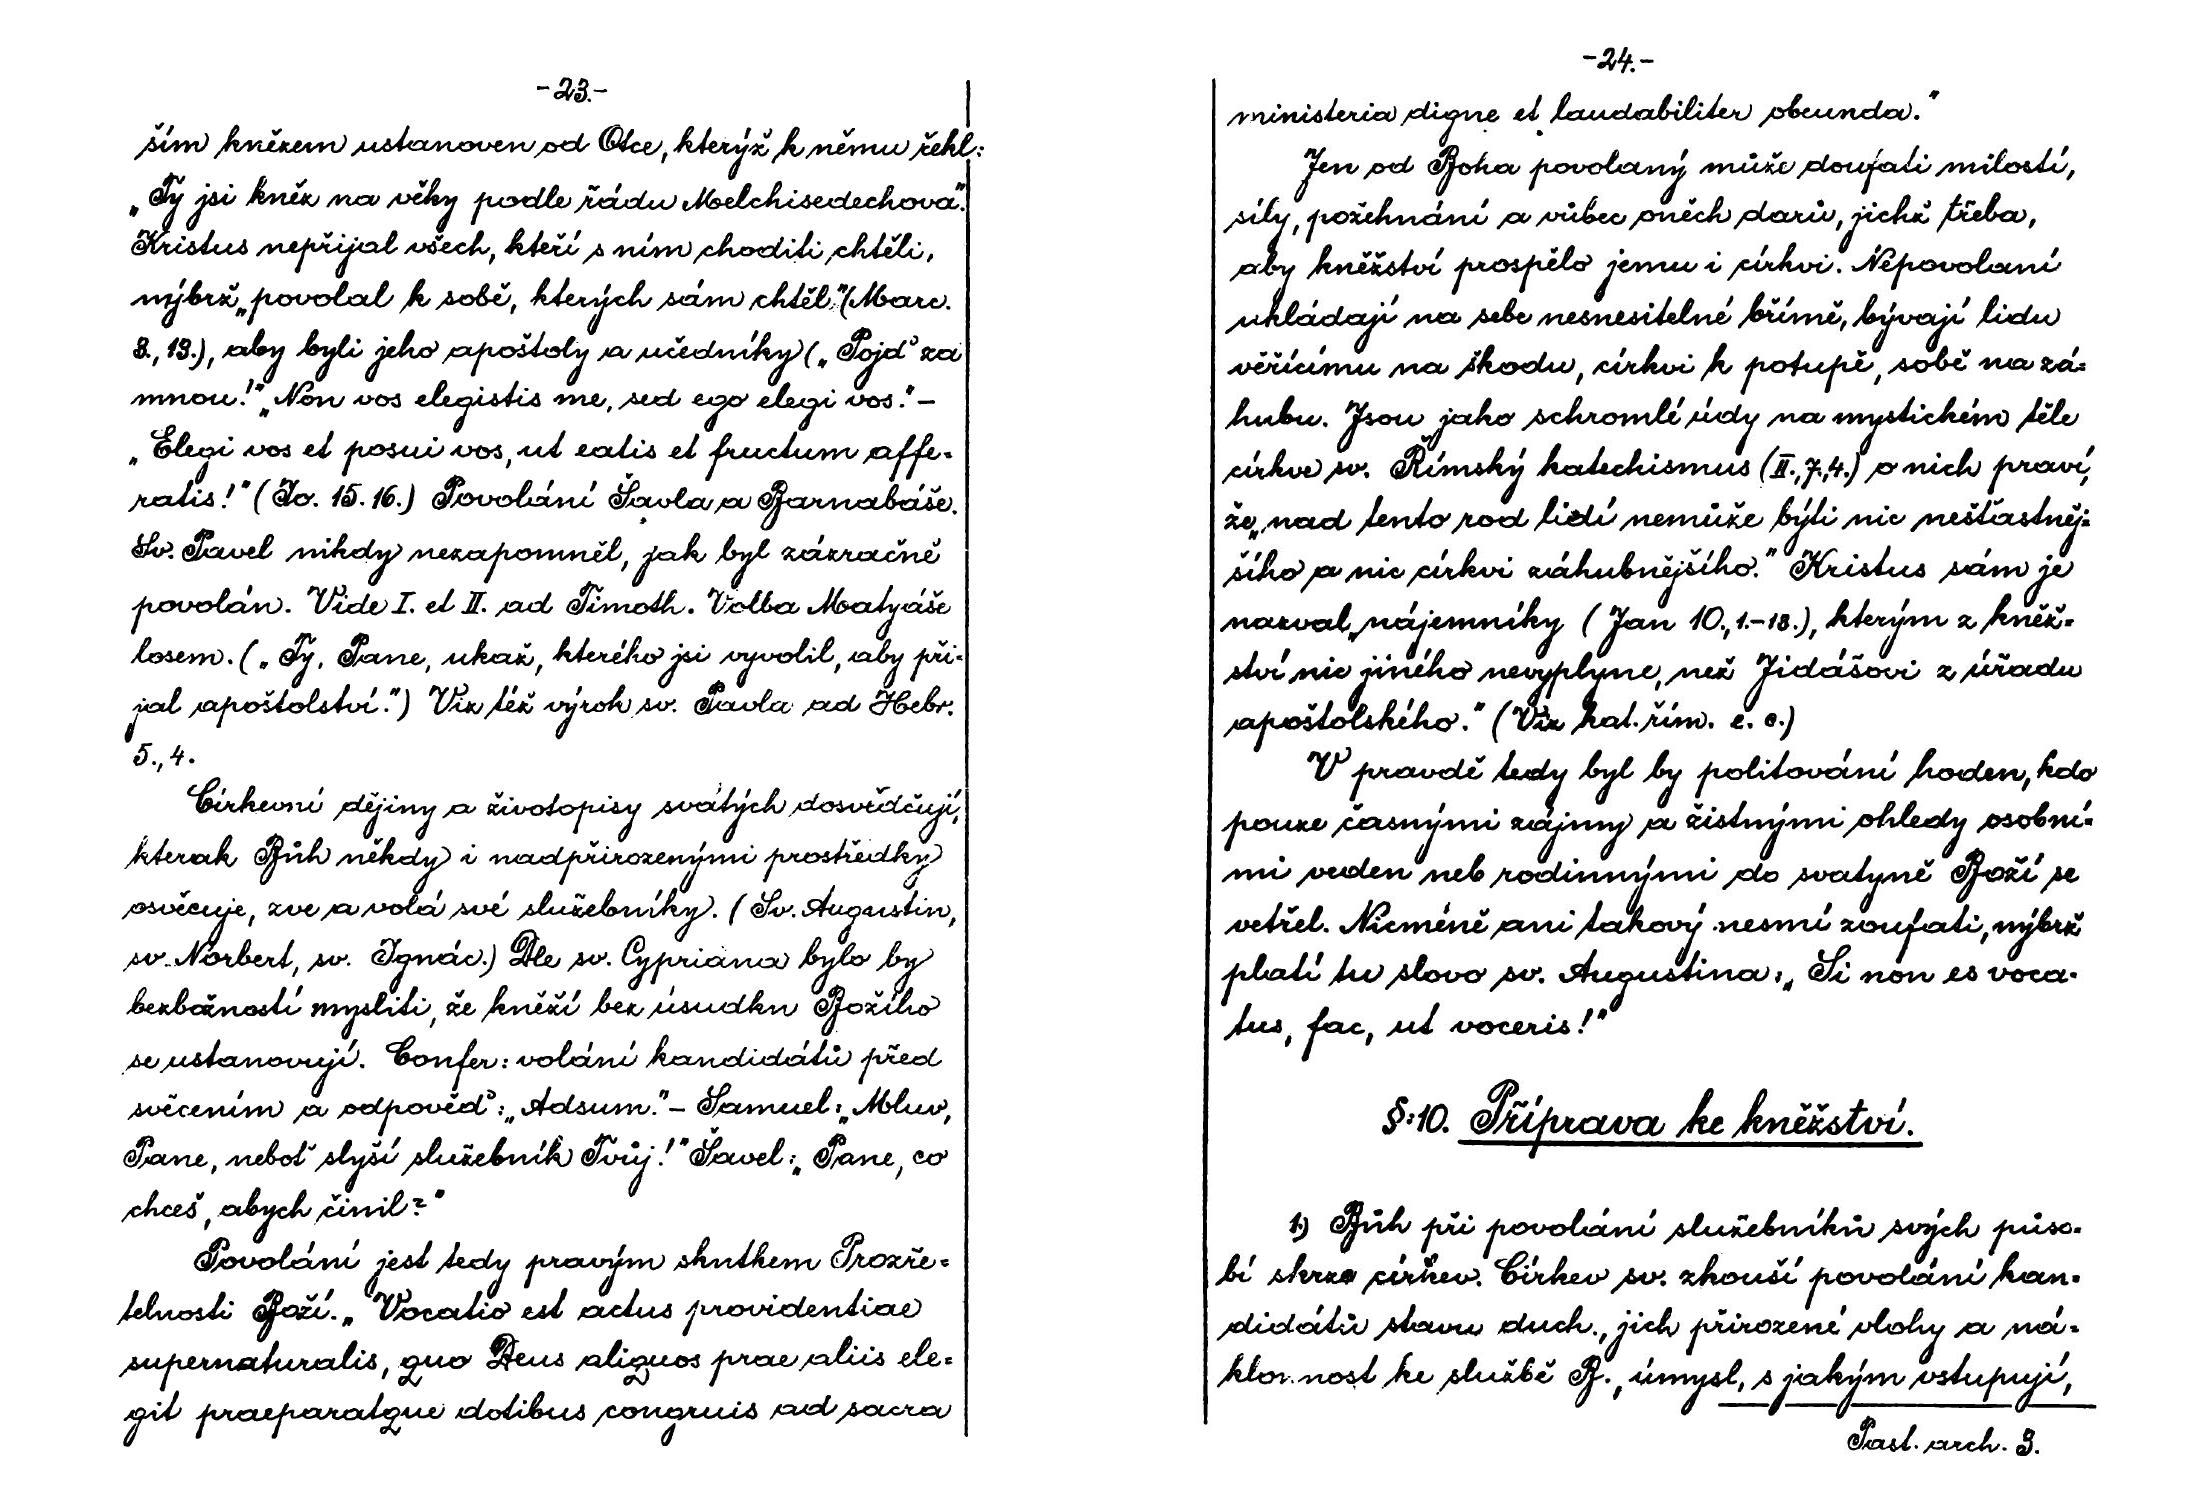 -23.-
ším knězem ustanoven od Otce, kterýž k němu řekl:
„Ty jsi kněz na věky podle řádu Melchisedechova."
Kristus nepřijal všech, kteří s ním choditi chtěli,
nýbrž „povolal k sobě, kterých sám chtěl" (Marc.
3., 13.), aby byli jeho apoštoly a učedníky („Pojď za
mnou!" „Non vos elegistis me, sed ego elegi vos." –
„Elegi vos et posui vos, ut eatis et fructum affe-
ratis!" (Jo. 15. 16.) Povolání Šavla a Barnabáše.
Sv. Pavel nikdy nezapomněl, jak byl zázračně
povolán. Vide I. et II. ad Timoth. Volba Matyáše
losem. („Ty, Pane, ukaž, kterého jsi vyvolil, aby při-
jal apoštolství.") Viz též výrok sv. Pavla ad Hebr.
5., 4.
Církevní dějiny a životopisy svatých dosvědčují,
kterak Bůh někdy i nadpřirozenými prostředky
osvěcuje, zve a volá své služebníky. (Sv. Augustin,
sv. Norbert, sv. Ignác.) Dle sv. Cypriana bylo by
bezbožností mysliti, že kněží bez úsudku Božího
se ustanovují. Confer: volání kandidátů před
svěcením a odpověď: „Adsum." – Samuel: „Mluv,
Pane, neboť slyší služebník Tvůj!" Šavel: „Pane, co
chceš, abych činil?"
Povolání jest tedy pravým skutkem Prozře-
telnosti Boží. „Vocatio est actus providentiae
supernaturalis, quo Deus aliquos prae aliis ele-
git praeparatque dotibus congruis ad sacra
-24.-
ministeria digne et laudabiliter obeunda."
Jen od Boha povolaný může doufati milostí,
síly, požehnání a vůbec oněch darů, jichž třeba,
aby kněžství prospělo jemu i církvi. Nepovolaní
ukládají na sebe nesnesitelné břímě, bývají lidu
věřícímu na škodu, církvi k potupě, sobě na zá-
hubu. Jsou jako schromlé údy na mystickém těle
církve sv. Římský katechismus (II., 7., 4.) o nich praví,
že „nad tento rod lidí nemůže býti nic nešťastněj-
šího a nic církvi záhubnějšího." Kristus sám je
nazval „nájemníky (Jan 10., 1.-18.), kterým z kněž-
ství nic jiného nevyplyne, než Jidášovi z úřadu
apoštolského." (Viz kat. řím. e. c.)
V pravdě tedy byl by politování hoden, kdo
pouze časnými zájmy a žistnými ohledy osobní-
mi veden neb rodinnými do svatyně Boží se
vetřel. Nicméně ani takový nesmí zoufati, nýbrž
platí tu slovo sv. Augustina: „Si non es voca-
tus, fac, ut voceris!"
§:10. Příprava ke kněžství.
1.) Bůh při povolání služebníků svých půso-
bí skrze církev. Církev sv. zkouší povolání kan-
didátů stavu duch., jich přirozené vlohy a ná-
klonnost ke službě B., úmysl, s jakým vstupují,
Past. arch. 3.